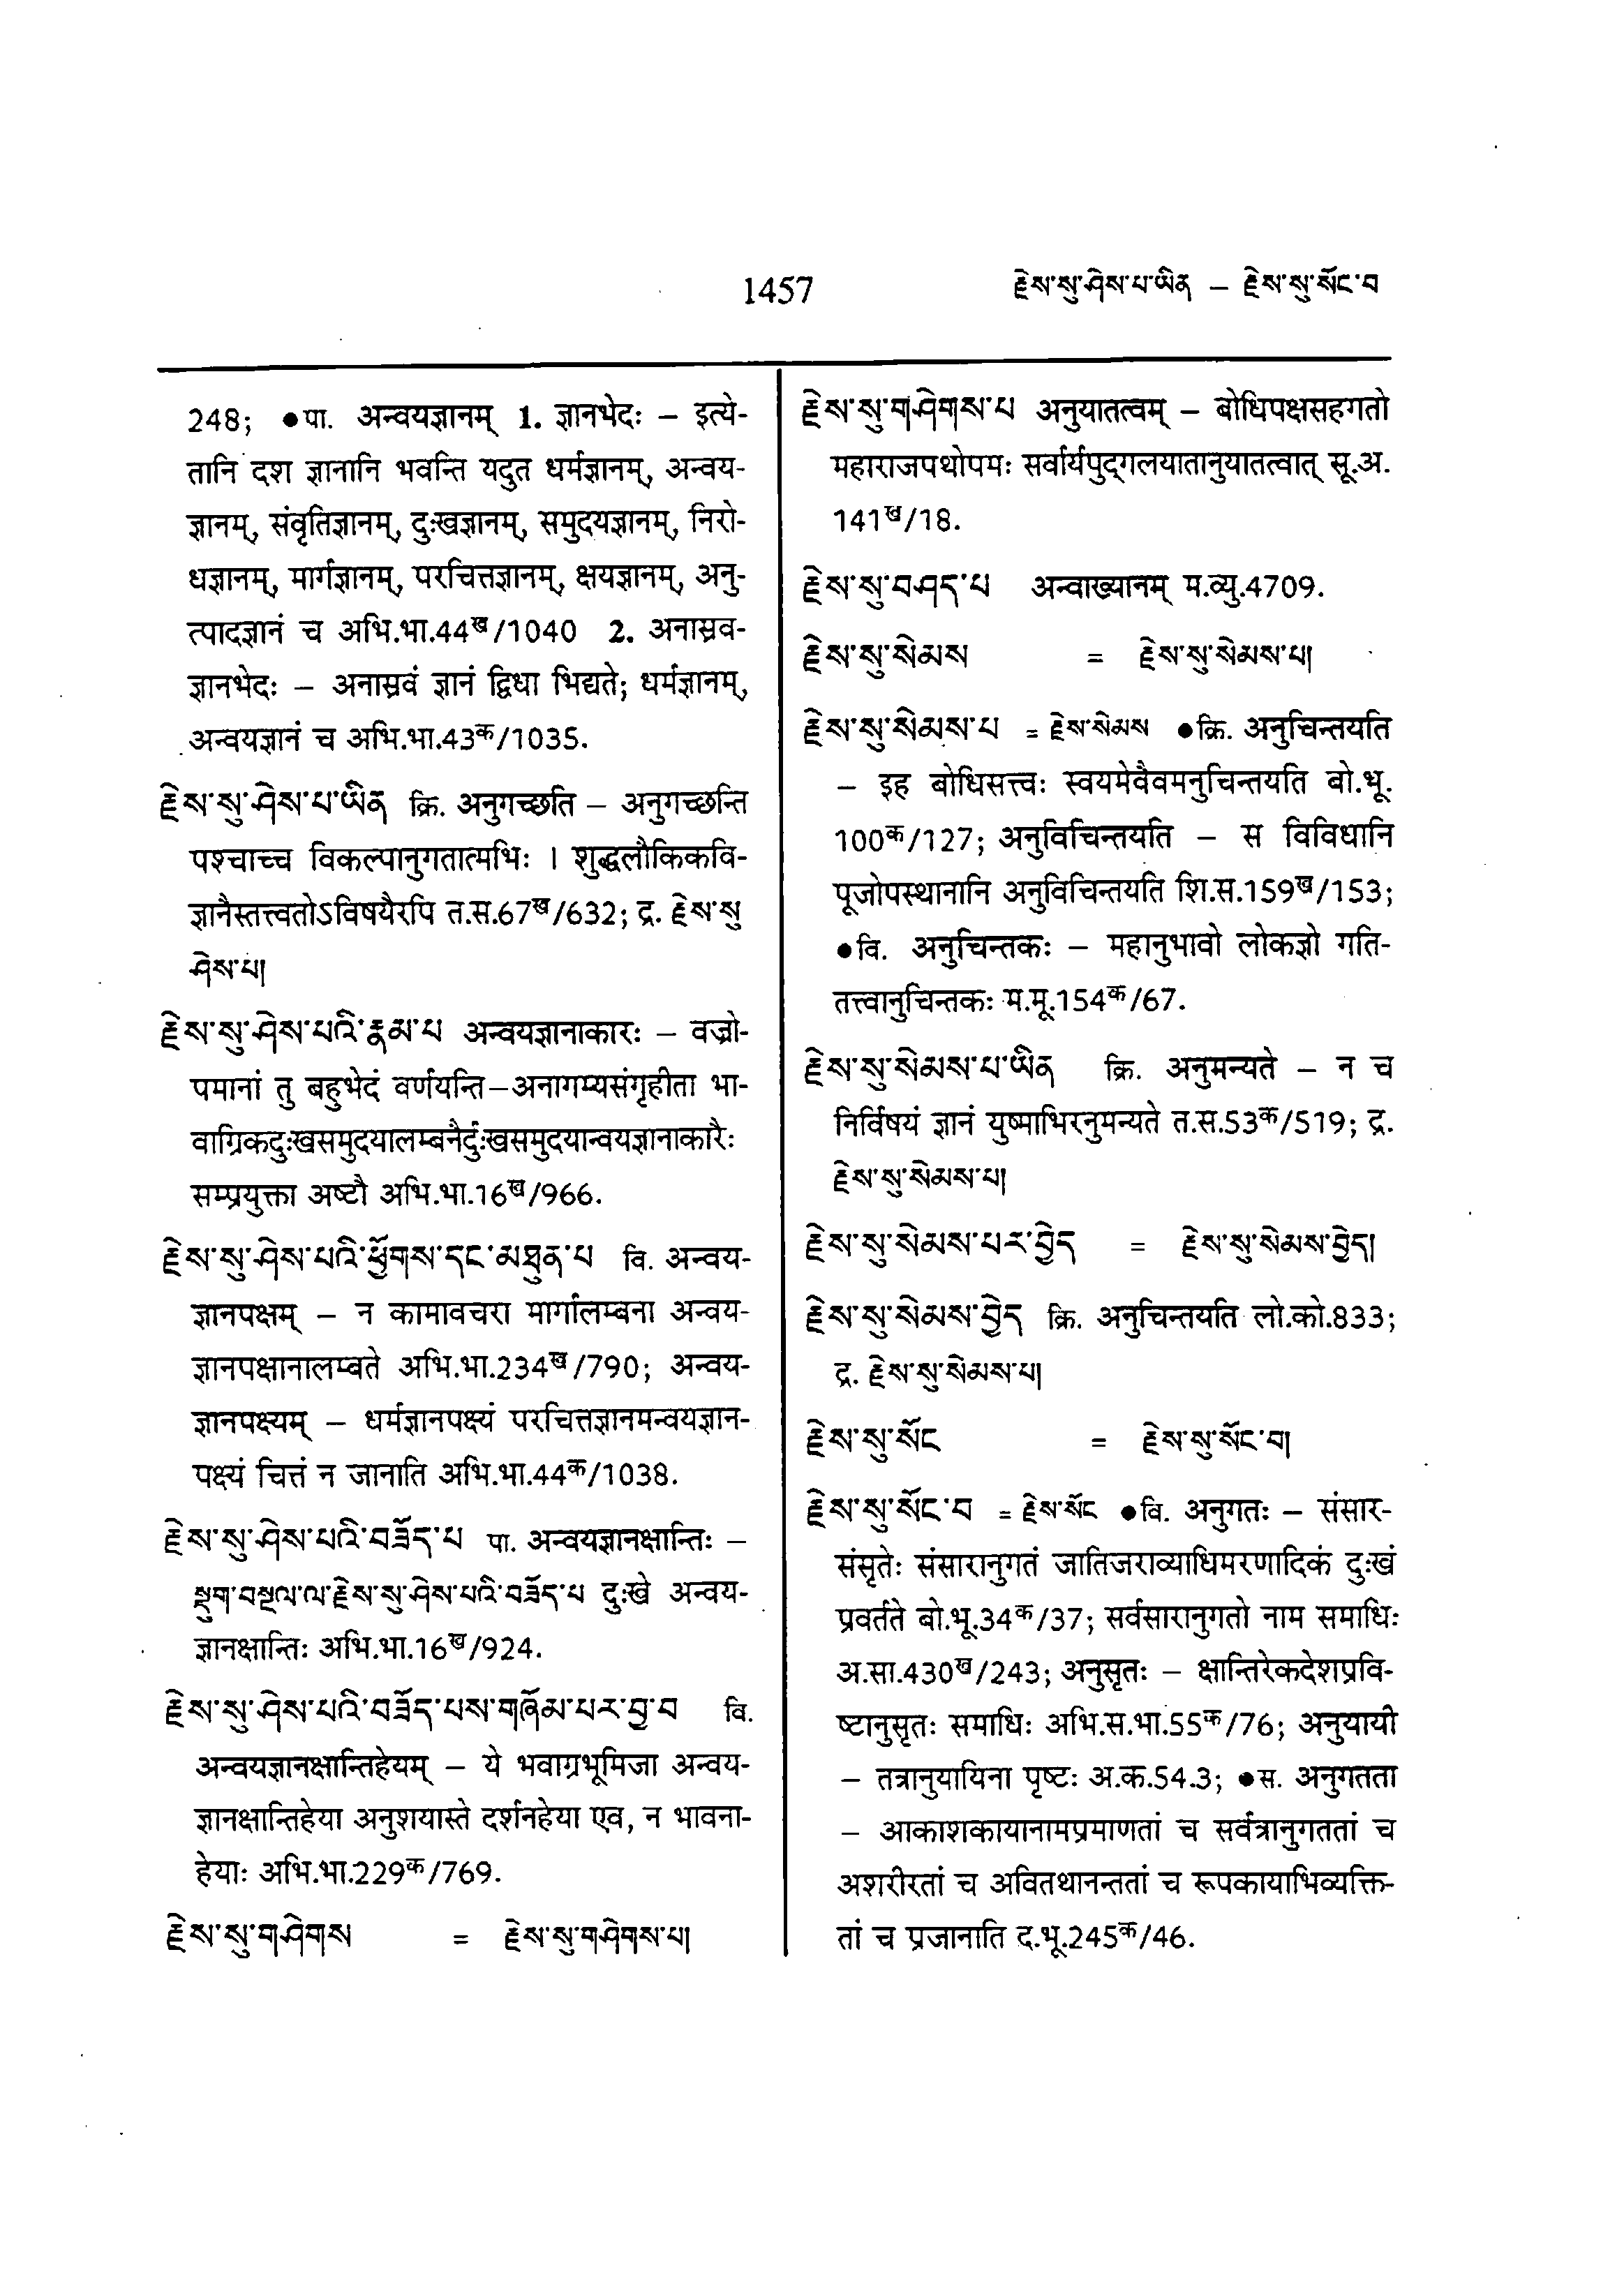 1457 རྗེས་སུ་ཤེས་པ་ཡིན – རྗེས་སུ་སོང་བ
248; ●पा. अन्वयज्ञानम् 1. ज्ञानभेदः – इत्ये-
तानि दश ज्ञानानि भवन्ति यदुत धर्मज्ञानम्, अन्वय-
ज्ञानम्, संवृतिज्ञानम्, दुःखज्ञानम्, समुदयज्ञानम्, निरो-
धज्ञानम्, मार्गज्ञानम्, परचित्तज्ञानम्, क्षयज्ञानम्, अनु-
त्पादज्ञानं च अभि.भा.44ख/1040 2. अनास्रव-
ज्ञानभेदः – अनास्रवं ज्ञानं द्विधा भिद्यते; धर्मज्ञानम्,
अन्वयज्ञानं च अभि.भा.43क/1035.
རྗེས་སུ་ཤེས་པ་ཡིན क्रि. अनुगच्छति – अनुगच्छन्ति
पश्चाच्च विकल्पानुगतात्मभिः । शुद्धलौकिकवि-
ज्ञानैस्तत्त्वतोऽविषयैरपि त.स.67ख/632; द्र. རྗེས་སུ་
ཤེས་པ།
རྗེས་སུ་ཤེས་པའི་རྣམ་པ अन्वयज्ञानाकारः – वज्रो-
पमानां तु बहुभेदं वर्णयन्ति–अनागम्यसंगृहीता भा-
वाग्रिकदुःखसमुदयालम्बनैर्दुःखसमुदयान्वयज्ञानाकारैः
सम्प्रयुक्ता अष्टौ अभि.भा.16ख/966.
རྗེས་སུ་ཤེས་པའི་ཕྱོགས་དང་མཐུན་པ वि. अन्वय-
ज्ञानपक्षम् – न कामावचरा मार्गालम्बना अन्वय-
ज्ञानपक्षानालम्बते अभि.भा.234ख/790; अन्वय-
ज्ञानपक्ष्यम् – धर्मज्ञानपक्ष्यं परचित्तज्ञानमन्वयज्ञान-
पक्ष्यं चित्तं न जानाति अभि.भा.44क/1038.
རྗེས་སུ་ཤེས་པའི་བཟོད་པ पा. अन्वयज्ञानक्षान्तिः –
སྡུག་བསྔལ་ལ་རྗེས་སུ་ཤེས་པའི་བཟོད་པ दुःखे अन्वय-
ज्ञानक्षान्तिः अभि.भा.16ख/924.
རྗེས་སུ་ཤེས་པའི་བཟོད་པས་གཞོམ་པར་བྱ་བ वि.
अन्वयज्ञानक्षान्तिहेयम् – ये भवाग्रभूमिजा अन्वय-
ज्ञानक्षान्तिहेया अनुशयास्ते दर्शनहेया एव, न भावना-
हेयाः अभि.भा.229क/769.
རྗེས་སུ་གཤེགས = རྗེས་སུ་གཤེགས་པ།
རྗེས་སུ་གཤེགས་པ अनुयातत्वम् – बोधिपक्षसहगतो
महाराजपथोपमः सर्वार्यपुद्गलयातानुयातत्वात् सू.अ.
141ख/18.
རྗེས་སུ་བཤད་པ अन्वाख्यानम् म.व्यु.4709.
རྗེས་སུ་སེམས = རྗེས་སུ་སེམས་པ།
རྗེས་སུ་སེམས་པ = རྗེས་སེམས ●क्रि. अनुचिन्तयति
– इह बोधिसत्त्वः स्वयमेवैवमनुचिन्तयति बो.भू.
100क/127; अनुविचिन्तयति – स विविधानि
पूजोपस्थानानि अनुविचिन्तयति शि.स.159ख/153;
●वि. अनुचिन्तकः – महानुभावो लोकज्ञो गति-
तत्त्वानुचिन्तकः म.मू.154क/67.
རྗེས་སུ་སེམས་པ་ཡིན क्रि. अनुमन्यते – न च
निर्विषयं ज्ञानं युष्माभिरनुमन्यते त.स.53क/519; द्र.
རྗེས་སུ་སེམས་པ།
རྗེས་སུ་སེམས་པར་བྱེད = རྗེས་སུ་སེམས་བྱེད།
རྗེས་སུ་སེམས་བྱེད क्रि. अनुचिन्तयति लो.को.833;
द्र. རྗེས་སུ་སེམས་པ།
རྗེས་སུ་སོང = རྗེས་སུ་སོང་བ།
རྗེས་སུ་སོང་བ = རྗེས་སོང ●वि. अनुगतः – संसार-
संसृतेः संसारानुगतं जातिजराव्याधिमरणादिकं दुःखं
प्रवर्तते बो.भू.34क/37; सर्वसारानुगतो नाम समाधिः
अ.सा.430ख/243; अनुसृतः – क्षान्तिरेकदेशप्रवि-
ष्टानुसृतः समाधिः अभि.स.भा.55क/76; अनुयायी
– तत्रानुयायिना पृष्टः अ.क.54.3; ●स. अनुगतता
– आकाशकायानामप्रमाणतां च सर्वत्रानुगततां च
अशरीरतां च अवितथानन्ततां च रूपकायाभिव्यक्ति-
तां च प्रजानाति द.भू.245क/46.